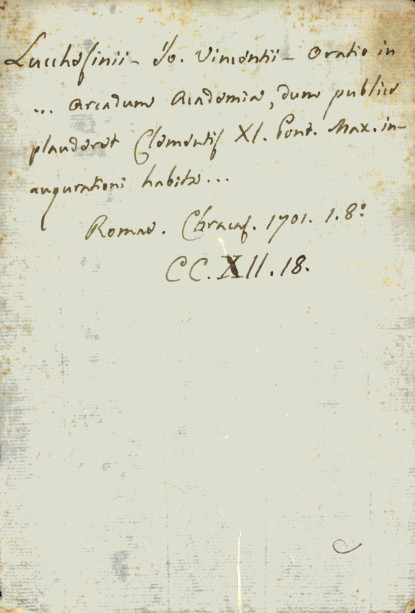 Lucchesinii - Jo. Vincentii - Oratio in
... Arcadum Academia, dum publice
plauderet Clementis XI. Pont. Max. in-
augurationi habita ...
Romae. Chracas. 1701. 1. 8º
CC. XII. 18.